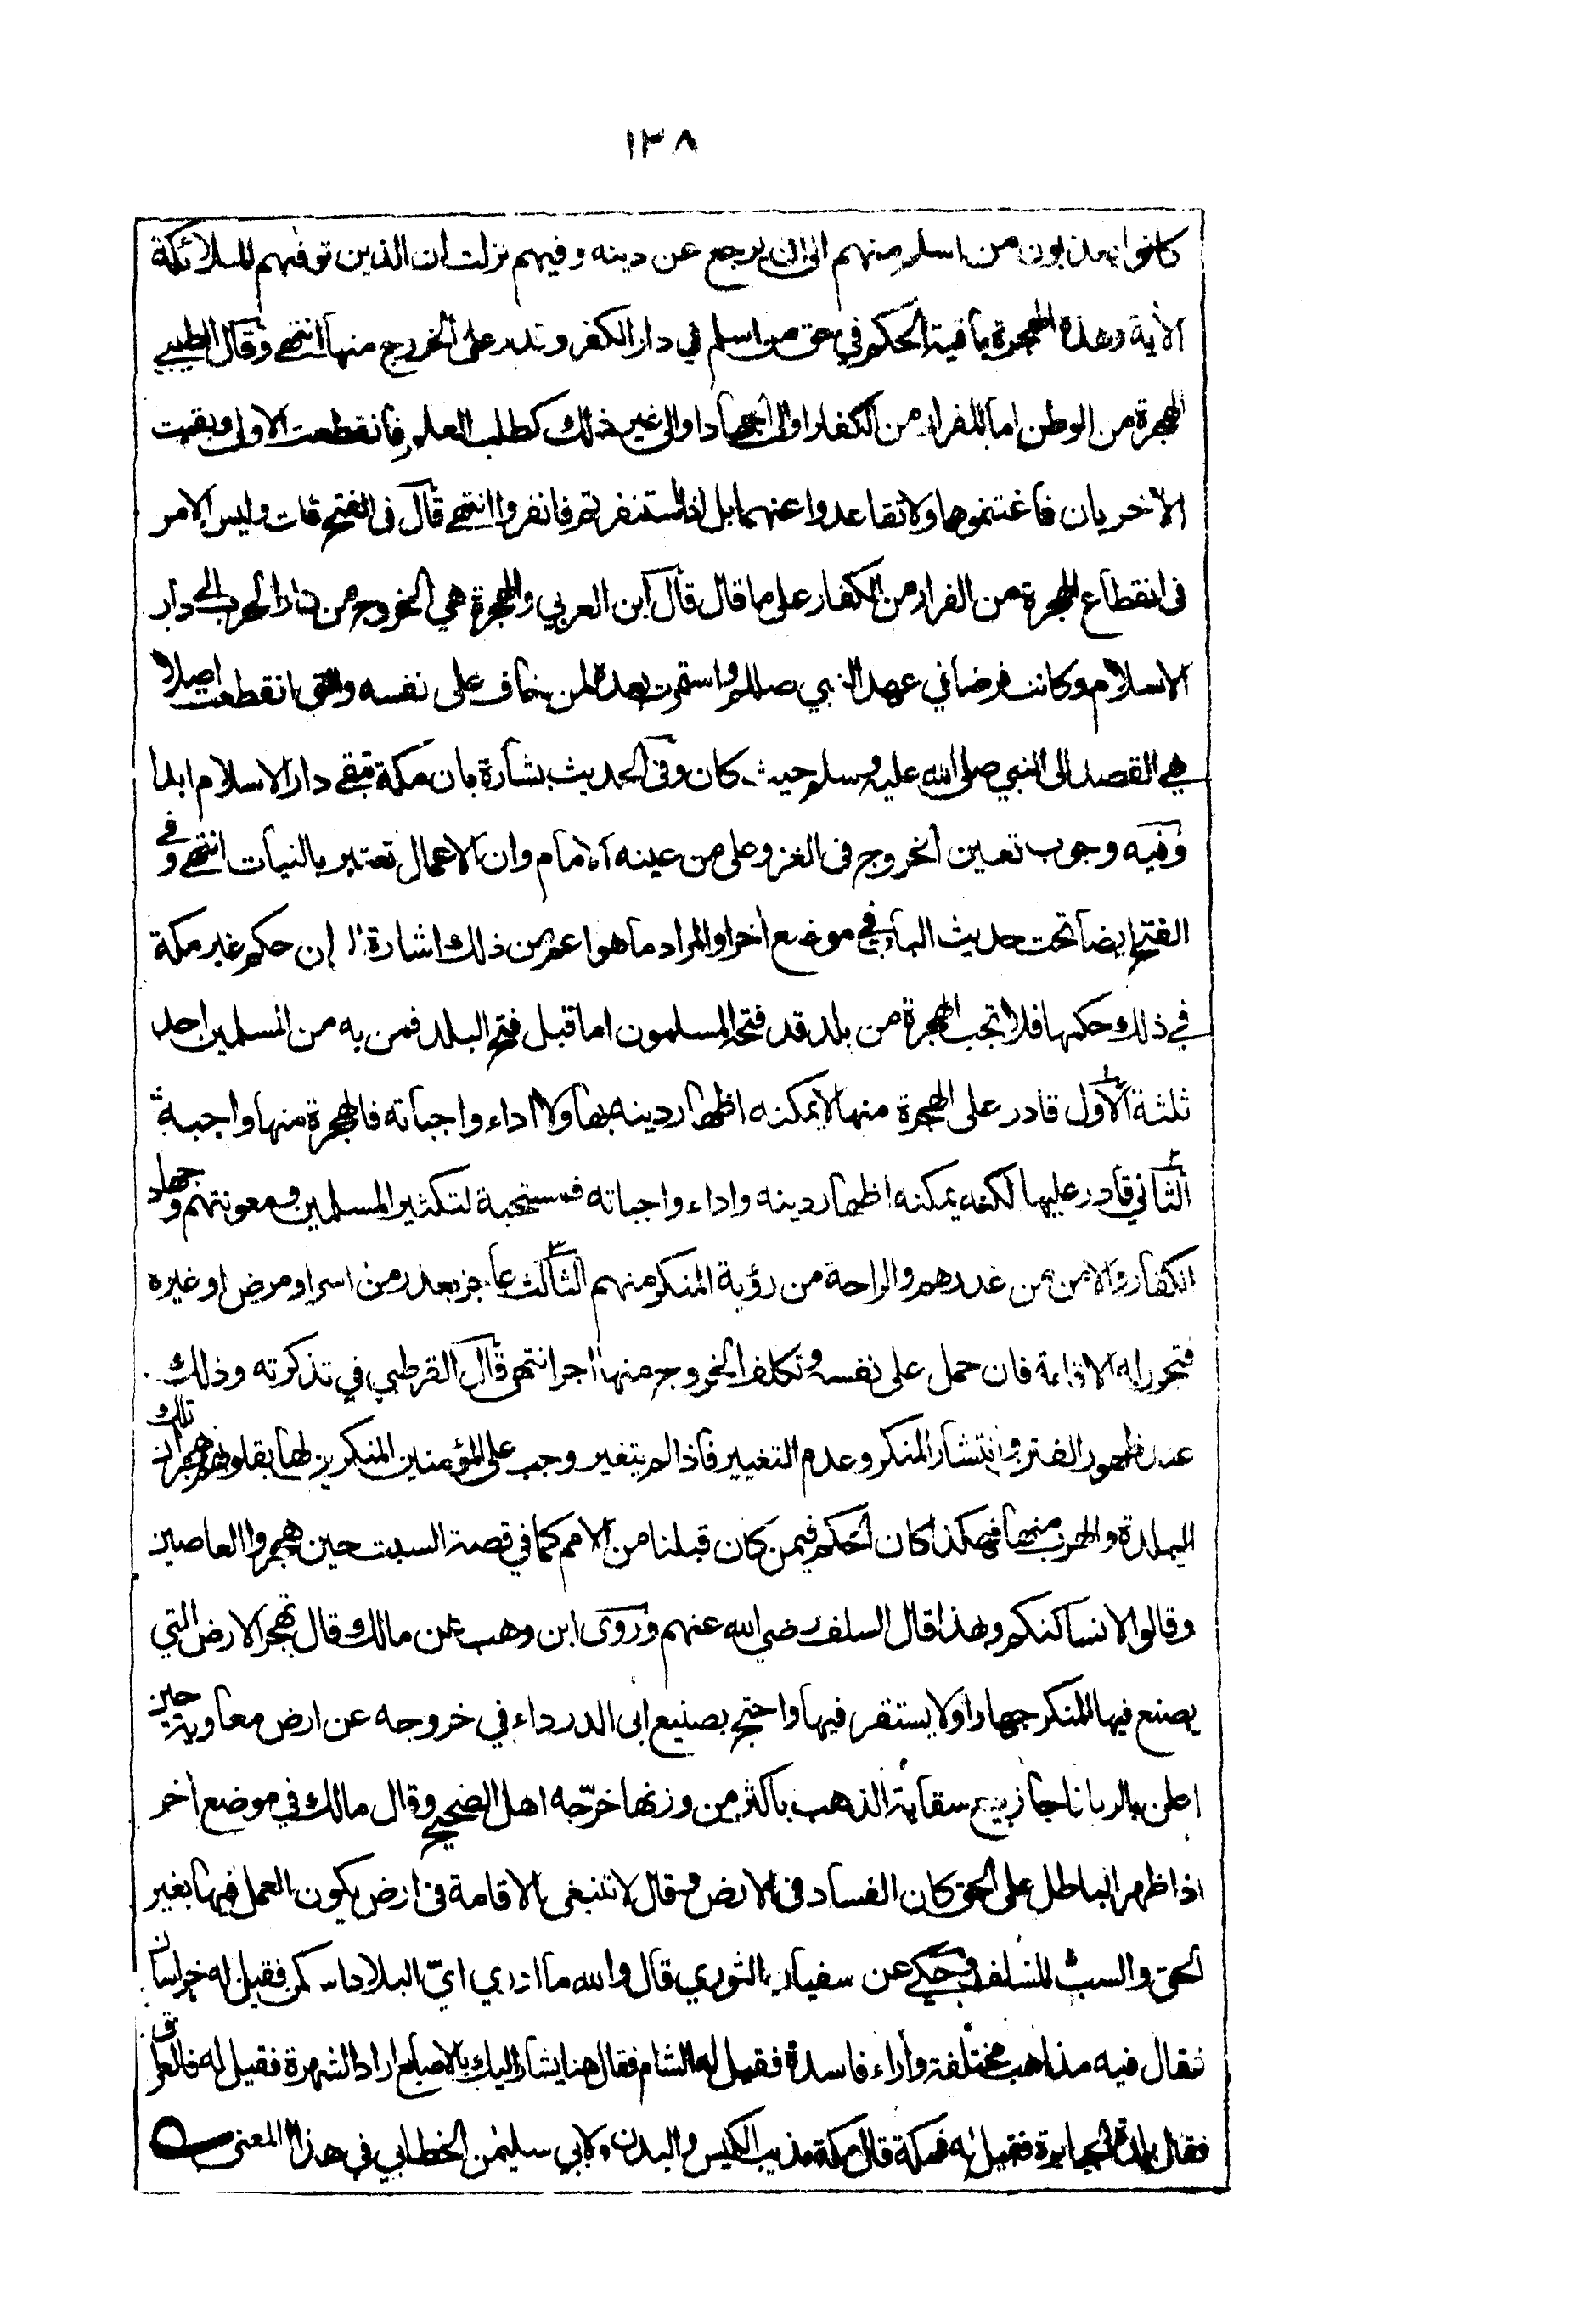 ١٣٨
كانوا يعذبون من اسلم منهم الى ان يرجع عن دينه وفيهم نزلت ان الذين توفهم الملائكة
الاية وهذه الهجرة باقية الحكم في حق من اسلم في دار الكفر وقدر على الخروج منها انتهى وقال الطيبي
الهجرة من الوطن اما للفرار من الكفار او الى الجهاد او الى غير ذلك كطلب العلم فانقطعت الاولى وبقيت
الاخريان فاغتنموهما ولا تقاعدوا عنهما بل اذا استنفرتم فانفروا انتهى قال في الفتح قلت وليس الامر
في انقطاع الهجرة من الفرار من الكفار على ما قال قال ابن العربي والهجرة هي الخروج من دار الحرب الى دار
الاسلام وكانت فرضا في عهد النبي صللم واستمرت بعده لمن خاف على نفسه والتي انقطعت اصلا
هي القصد الى النبي صلى الله عليه وسلم حيث كان وفى الحديث بشارة بان مكة تبقى دار الاسلام ابدا
وفيه وجوب تعين الخروج فى الغزو على من عينه الامام وان الاعمال تعتبر بالنيات انتهى وفي
الفتح ايضا تحت حديث الباب في موضع اخر او المراد ما هو اعم من ذلك اشارة الى ان حكم غير مكة
في ذلك حكمها فلا تجب الهجرة من بلد قد فتحه المسلمون اما قبل فتح البلد فمن به من المسلمين احد
ثلثة الاول قادر على الهجرة منها لا يمكنه اظهار دينه بها ولا اداء واجباته فالهجرة منها واجبة
الثاني قادر عليها لكنه يمكنه اظهار دينه واداء واجباته فمستحبة لتكثير المسلمين ومعونتهم وجهاد
الكفار والامن من غدرهم والراحة من رؤية المنكر منهم الثالث عاجز بعذر من اسر او مرض او غيره
فتجوز له الاقامة فان حمل على نفسه وتكلف الخروج منها اجر انتهى قال القرطبي في تذكرته وذلك
عند ظهور الفتن وانتشار المنكر وعدم التغيير فاذا لم يتغير وجب على المؤمنين المنكرين لها بقلوبهم هجران تلك
البلدة والهرب منها فهكذا كان الحكم فيمن كان قبلنا من الامم كما في قصة السبت حين هجروا العاصين
وقالوا لا نساكنكم وهذا قال السلف رضي الله عنهم وروى ابن وهب عن مالك قال تهجر الارض التي
يصنع فيها المنكر جهارا ولا يستقر فيها واحتج بصنيع ابى الدرداء في خروجه عن ارض معاوية حين
اعلن بالربا فاجاز بيع سقاية الذهب باكثر من وزنها خرّجه اهل الصحيح وقال مالك في موضع اخر
اذا ظهر الباطل على الحق كان الفساد فى الارض وقال لا تنبغى الاقامة في ارض يكون العمل فيها بغير
الحق والسب للسلف وحكي عن سفيان الثوري قال والله ما ادري اي البلاد اسكن فقيل له خراسان
فقال فيه مذاهب مختلفة واراء فاسدة فقيل له الشام فقال هنا يشار اليك بالاصابع اراد الشهرة فقيل له فالعراق
فقال بلدة الجبابرة فقيل له فمكة قال مكة مذيب الكيس والبدن ولابي سليمن الخطابي في هذا المعنى